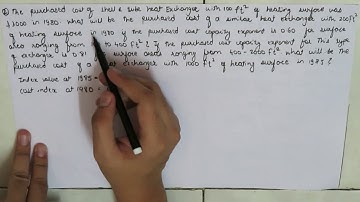 The purchased cost of shell & tube heat Exchanger with 100 ft² of heating surface was
$ 3000 in 1980. what will be the purchased cost of a similar heat exchanger with 200 ft²
of heating surface in 1980 if the purchased cost capacity exponent is 0.60 for surface
area ranging from to 400 ft²? If the purchased cost capacity exponent for This type
of exchanger is 0.8 surface areas ranging from 400 - 2000 ft² what will be The
purchased cost of a heat exchanger with 1000 ft² of heating surface in 1985?
Index value at 1985 =
cost index at 1980 =